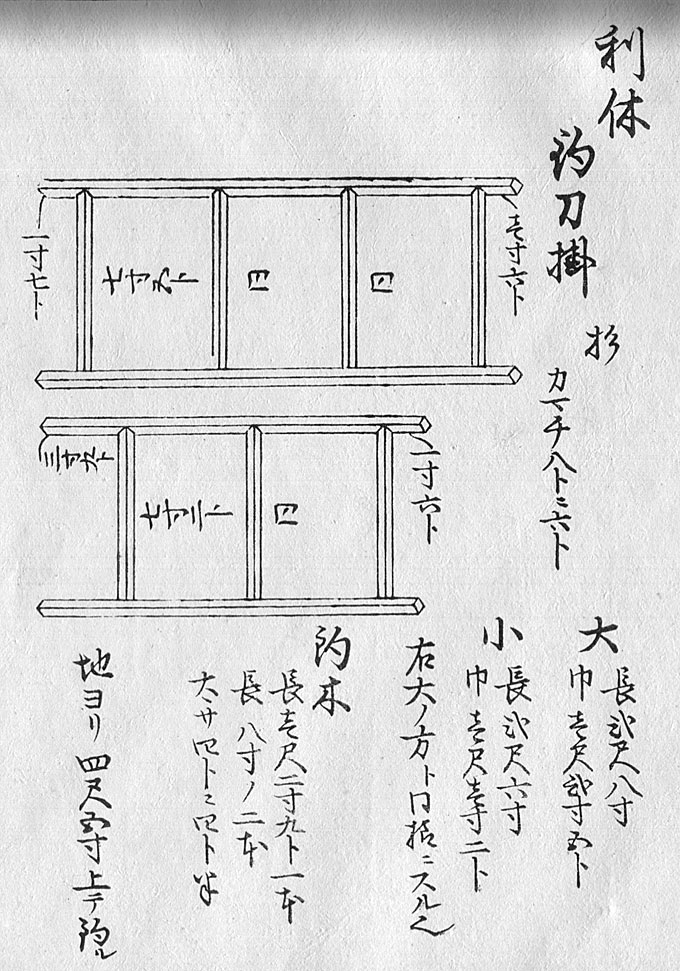 利休
釣刀掛
杉
カマチ八ト二六ト
壱寸六ト
一寸七ト
一寸六ト
七寸三ト
大
長弐尺八寸
巾壱尺弐寸五ト
小
長弐尺六寸
巾壱尺壱寸二ト
右大ノ方ト同拵ニスル
釣木
長壱尺二寸九ト一本
長八寸ノ二本
太サ四ト二四ト半
地ヨリ四尺五寸上テ釣ル